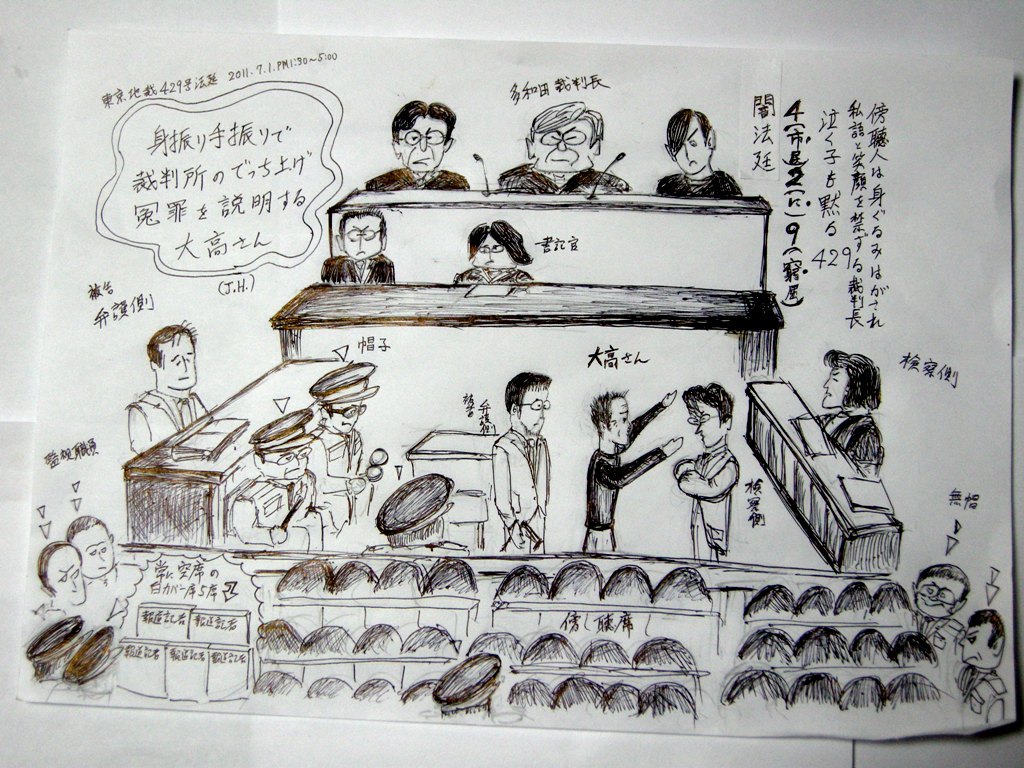 東京地裁429号法廷 2011.7.1.PM1:30~5:00
身振り手振りで
裁判所のでっち上げ
冤罪を説明する
大高さん
(J.H.)
多和田裁判長
闇法廷
4(市民2(に)9(窮屈)
傍聴人は身ぐるみはがされ
私語と笑顔を禁ずる裁判長
泣く子も黙る
429
書記官
被告
弁護側
帽子
大高さん
検察側
被告
弁護側
検察側
監視職員
無帽
常に空席の
白カバー席5席
報道記者 報道記者
報道記者 報道記者 報道記者
傍聴席